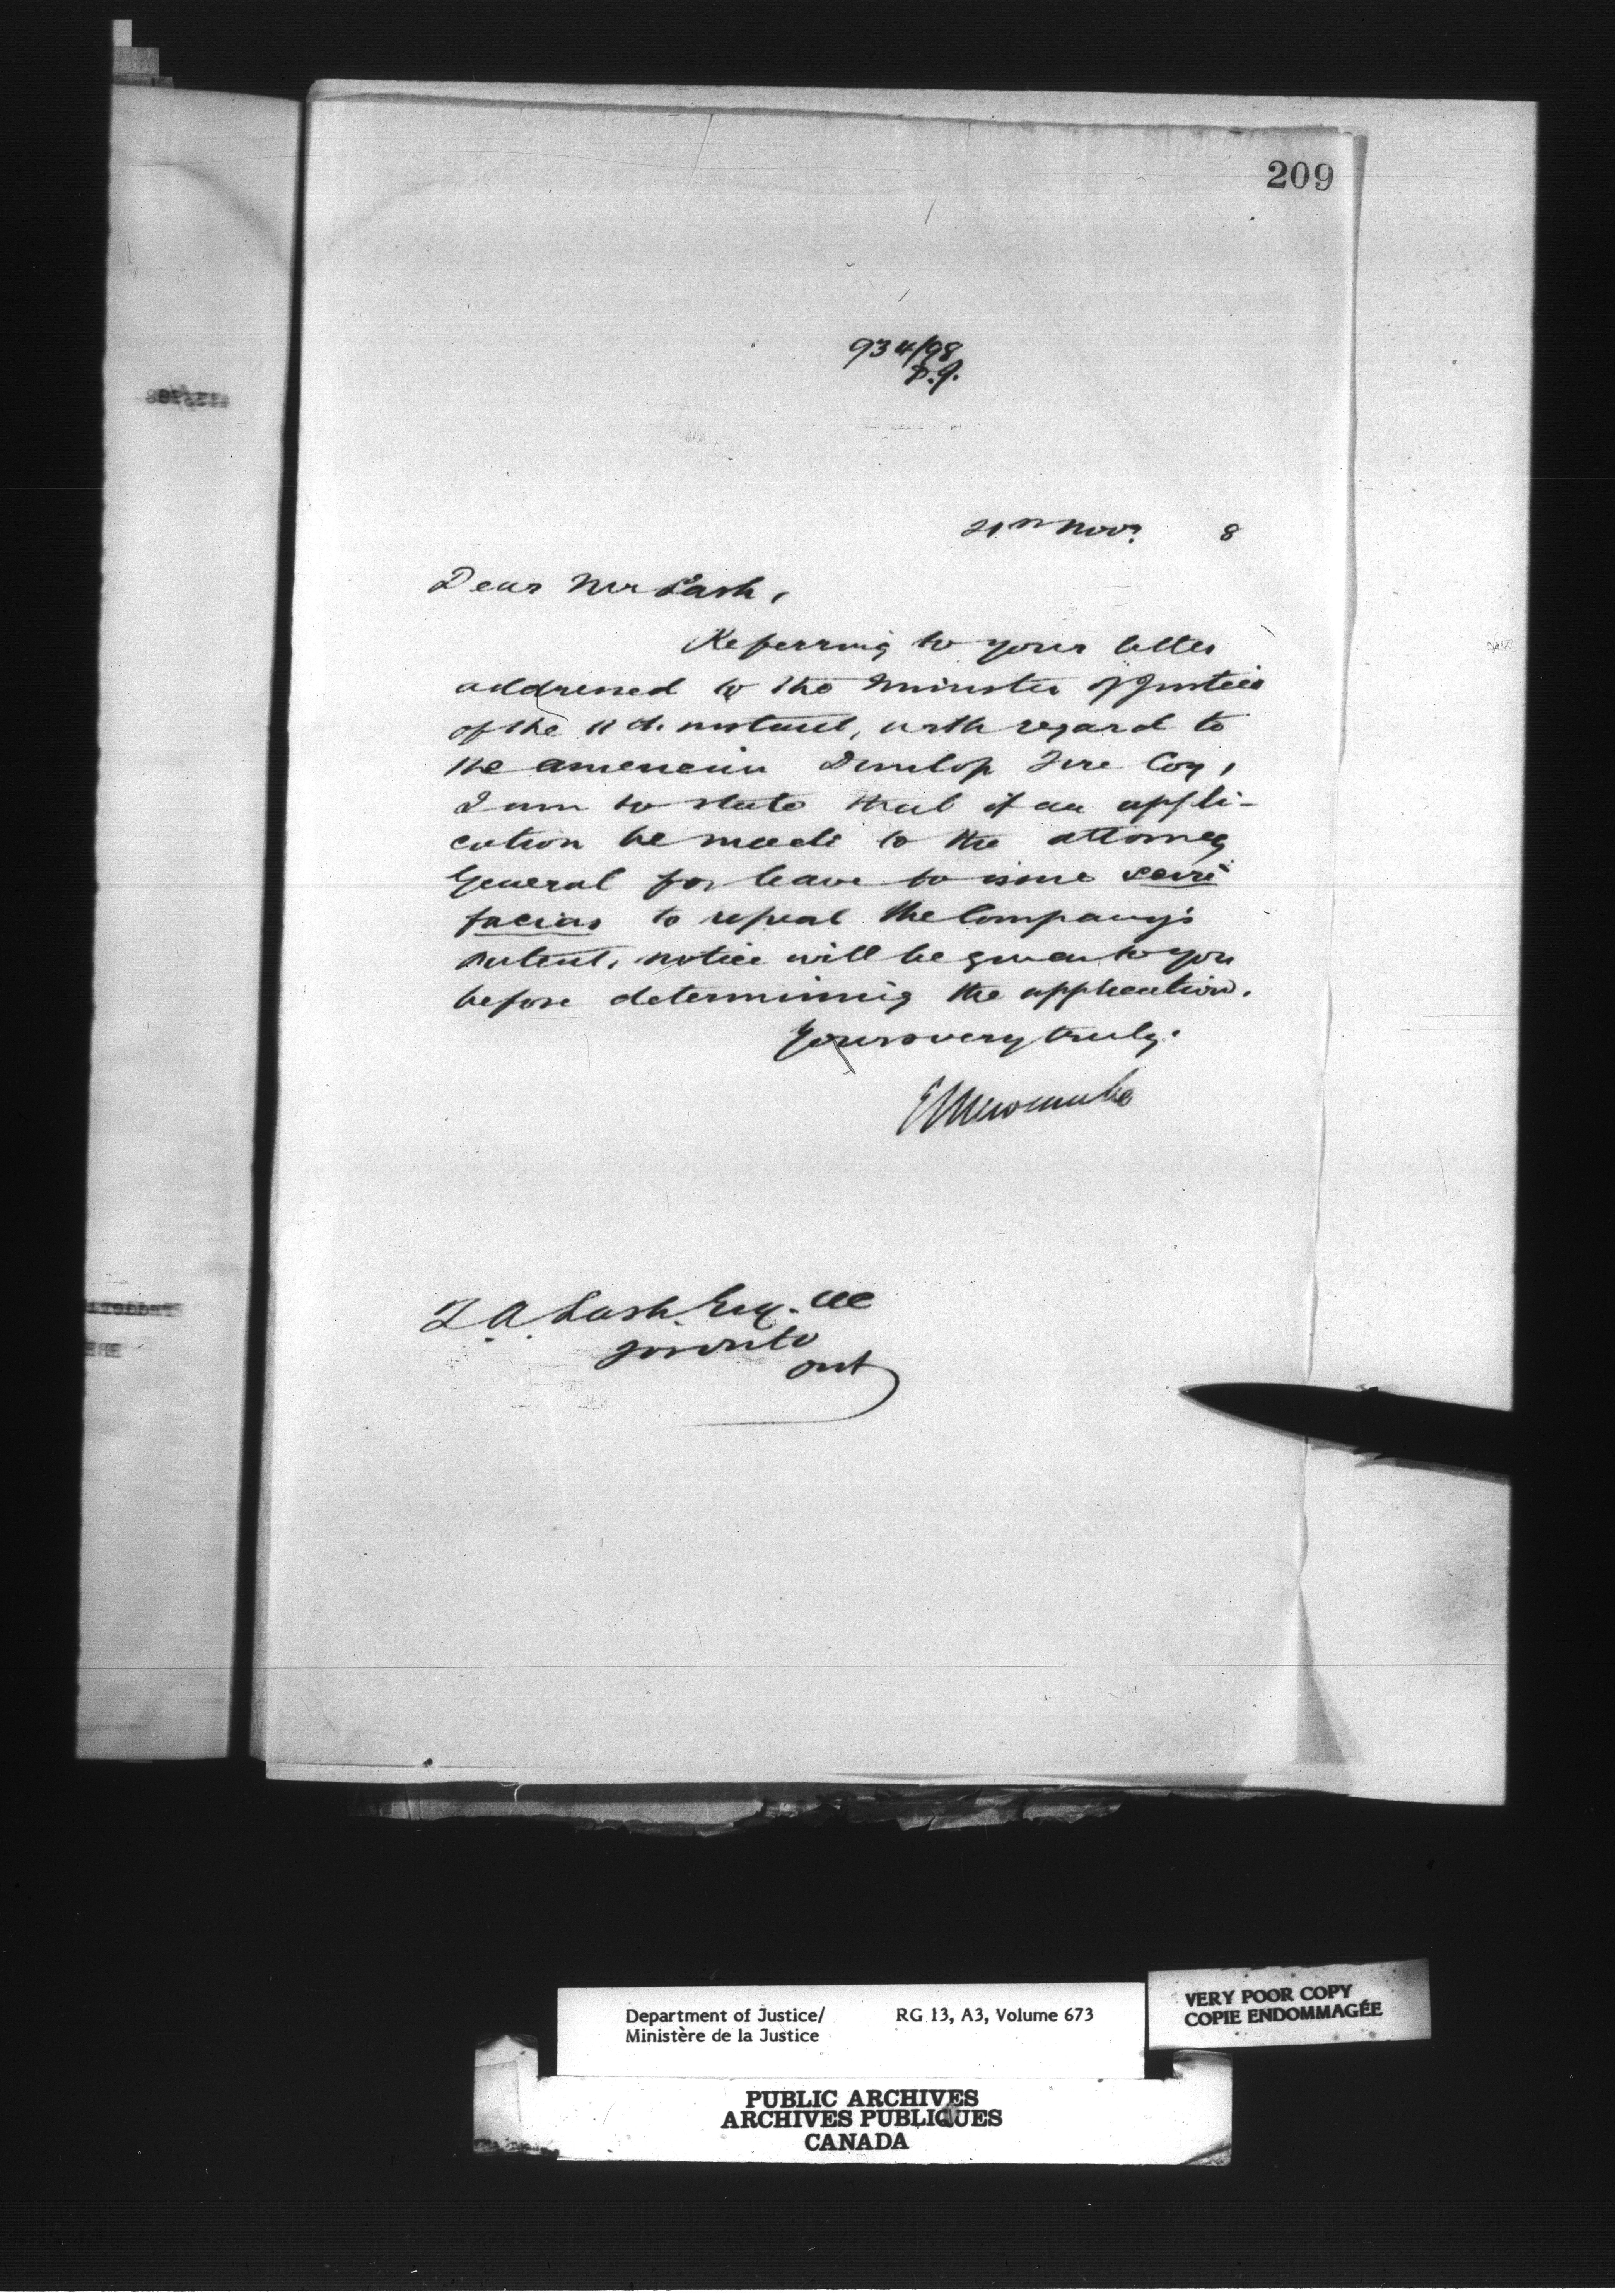 209
934/98
P.J.
21st Novr. 8
Dear Mr Lash,
Referring to your letter
addressed to the Minister of Justice
of the 11th. instant, with regard to
the American Dunlop Tire Coy,
I am to state that if an appli-
cation be made to the Attorney
General for leave to issue scire
facias to repeal the Company's
patent, notice will be given to you
before determining the application.
Yours very truly.
E L Newcombe
Z. A. Lash. Esq. QC
Toronto
Ont
Department of Justice/
Ministère de la Justice
RG 13, A3, Volume 673
VERY POOR COPY
COPIE ENDOMMAGÉE
PUBLIC ARCHIVES
ARCHIVES PUBLIQUES
CANADA